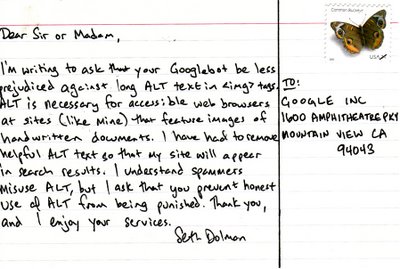 Dear Sir or Madam,
I'm writing to ask that your Googlebot be less
prejudiced against long ALT text in <img> tags.
ALT is necessary for accessible web browsers
at sites (like Mine) that feature images of
handwritten documents. I have had to remove
helpful ALT text so that my site will appear
in search results. I understand spammers
misuse ALT, but I ask that you prevent honest
use of ALT from being punished. Thank you,
and I enjoy your services.
Seth Dolman
Common Buckeye
USA
TO:
GOOGLE INC
1600 AMPHITHEATRE PKY
MOUNTAIN VIEW CA
94043